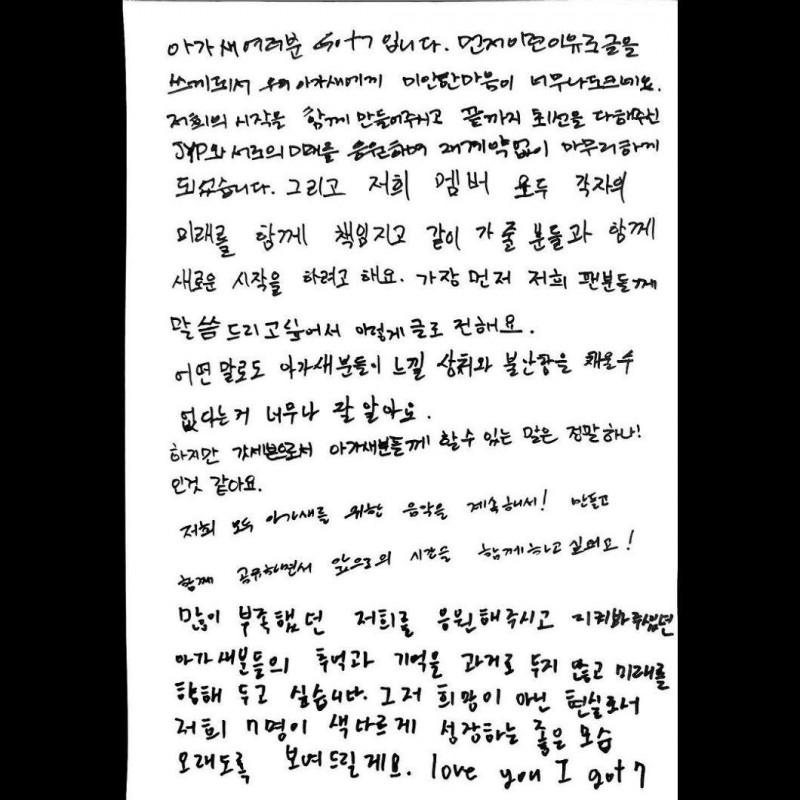 아가새여러분 Got7입니다. 먼저이런이유로글을
쓰게되서 우리아가새에게 미안한마음이 너무나도크네요.
저희의 시작을 함께 만들어주시고 끝까지 최선을 다해주신
JYP와 서로의 미래를 응원하며 재계약없이 마무리하게
되었습니다. 그리고 저희 멤버 모두 각자의
미래를 함께 책임지고 같이 가 줄 분들과 함께
새로운 시작을 하려고 해요. 가장 먼저 저희 팬분들께
말씀드리고싶어서 이렇게 글로 전해요.
어떤 말로도 아가새분들이 느낄 상처와 불안함을 채울수
없다는거 너무나 잘 알아요.
하지만 갓세븐으로서 아가새분들께 할수 있는 말은 정말하나!
인것 같아요.
저희 모두 아가새를 위한 음악을 계속해서! 만들고
함께 공유하면서 앞으로의 시간을 함께하고 싶어요!
많이 부족했던 저희를 응원해주시고 지켜봐주셨던
아가새분들의 추억과 기억을 과거로 두지 않고 미래를
향해 두고 싶습니다. 그저 희망이 아닌 현실로서
저희 7명이 색다르게 성장하는 좋은 모습
오래도록 보여드릴게요. love you I got7